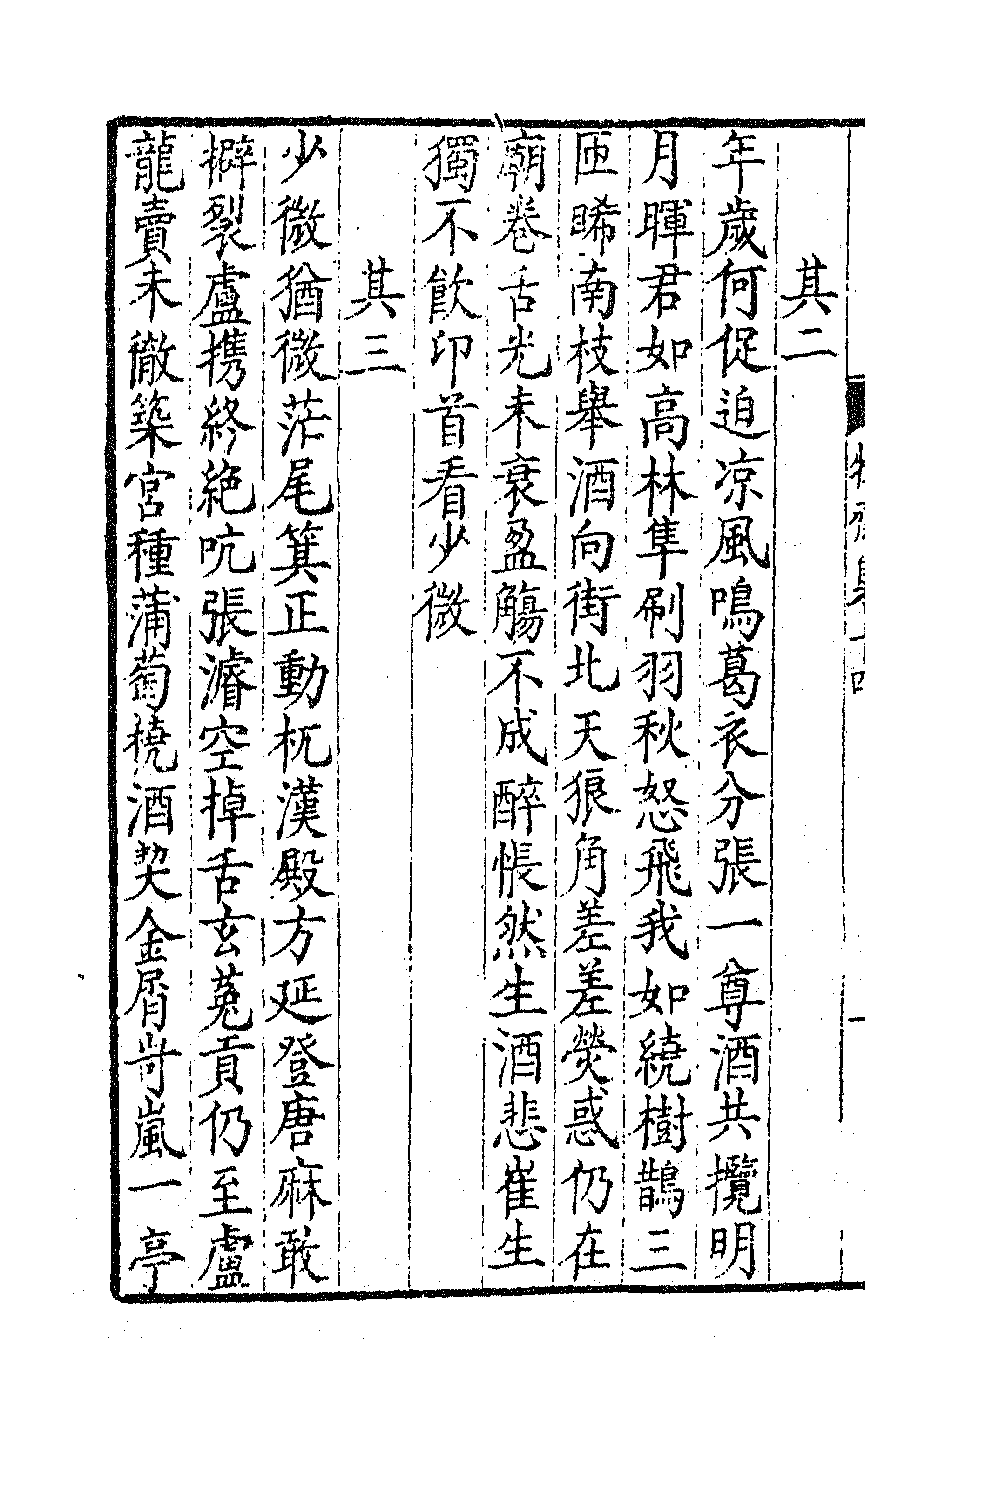 其二
年歲何促迫凉風鳴葛衣分張一尊酒共攬明
月暉君如高林隼刷羽秋怒飛我如繞樹鵲三
匝睎南枝舉酒向街北天狼角差差熒惑仍在
廟卷舌光未衰盈觴不成醉悵然生酒悲崔生
獨不飲印首看少微
其三
少微猶微茫尾箕正動杌漢殿方延登唐麻敢
擗裂盧携終絶吭張濬空掉舌玄菟貢仍至盧
龍賣未徹築宮種蒲萄橈酒契金屑岢嵐一亭